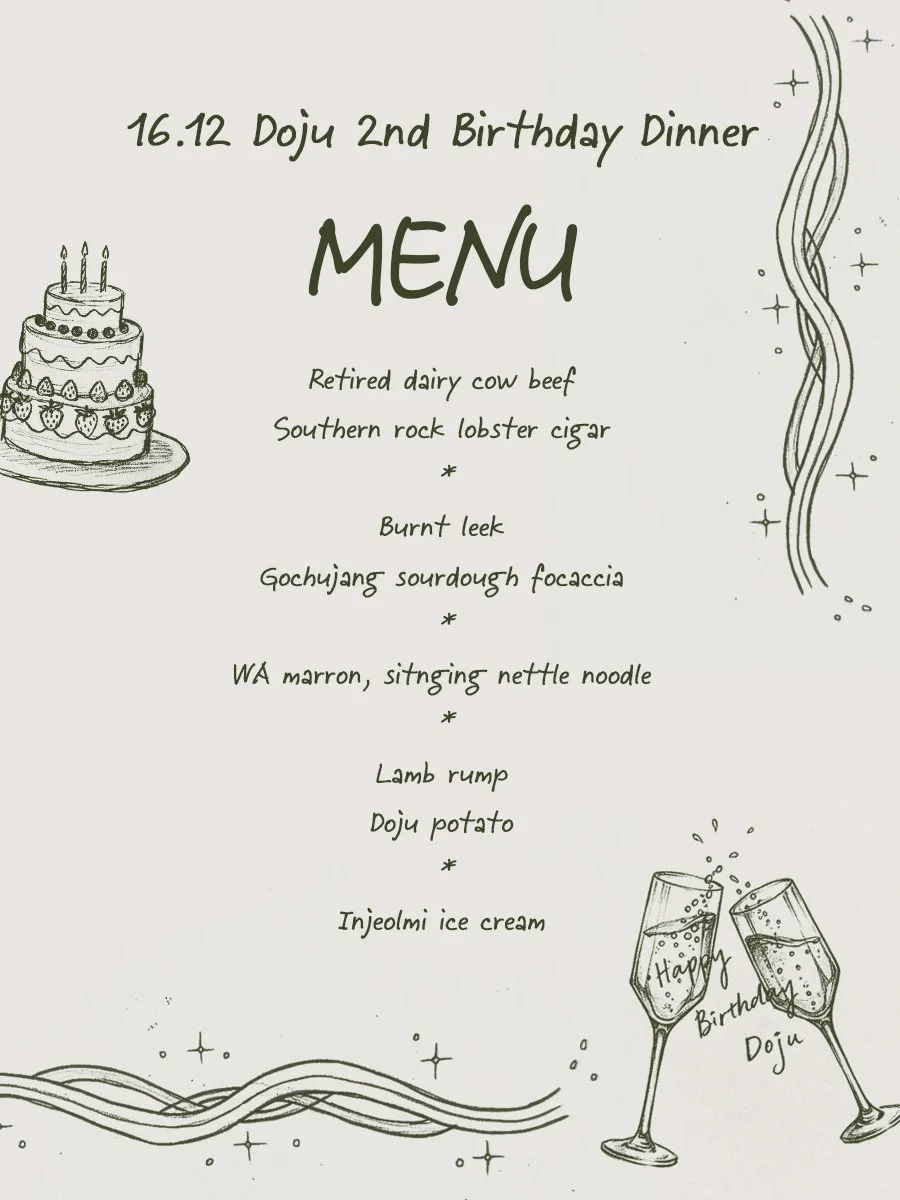 16.12 Doju 2nd Birthday Dinner
MENU
Retired dairy cow beef
Southern rock lobster cigar
*
Burnt leek
Gochujang sourdough focaccia
*
WA marron, sitnging nettle noodle
*
Lamb rump
Doju potato
*
Injeolmi ice cream
Happy
Birthday
Doju